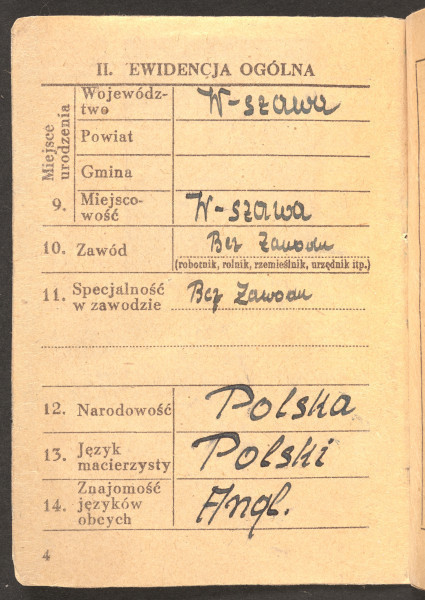 II. EWIDENCJA OGÓLNA
Miejsce
urodzenia
Wojewódz-
two
W-szawa
Powiat
Gmina
9. Miejsco-
wość
W-szawa
10. Zawód
Bez Zawodu
(robotnik, rolnik, rzemieślnik, urzędnik itp.)
11. Specjalność
w zawodzie
Bez Zawodu
12. Narodowość
Polska
13. Język
macierzysty
Polski
14. Znajomość
języków
obcych
Angl.
4